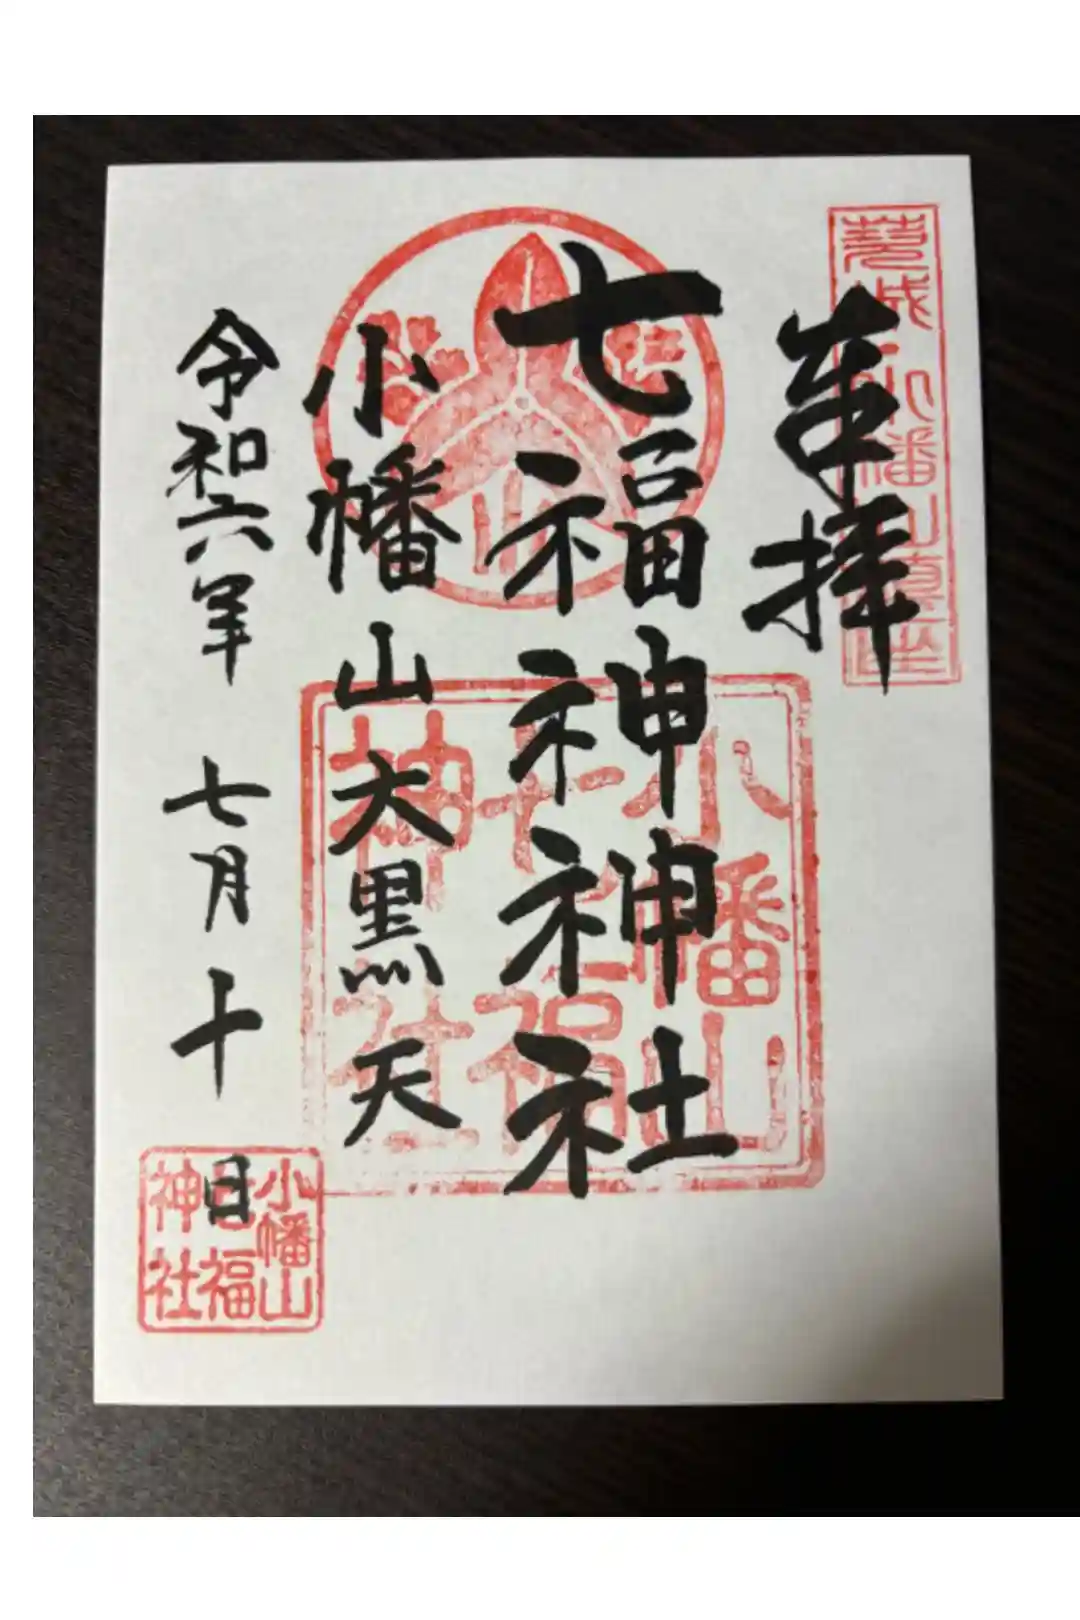 茨城小幡山鎮座
奉拝
七福神神社
小幡山大黒天
令和六年 七月十日
小幡山
七福
神社
小幡山
七福
神社